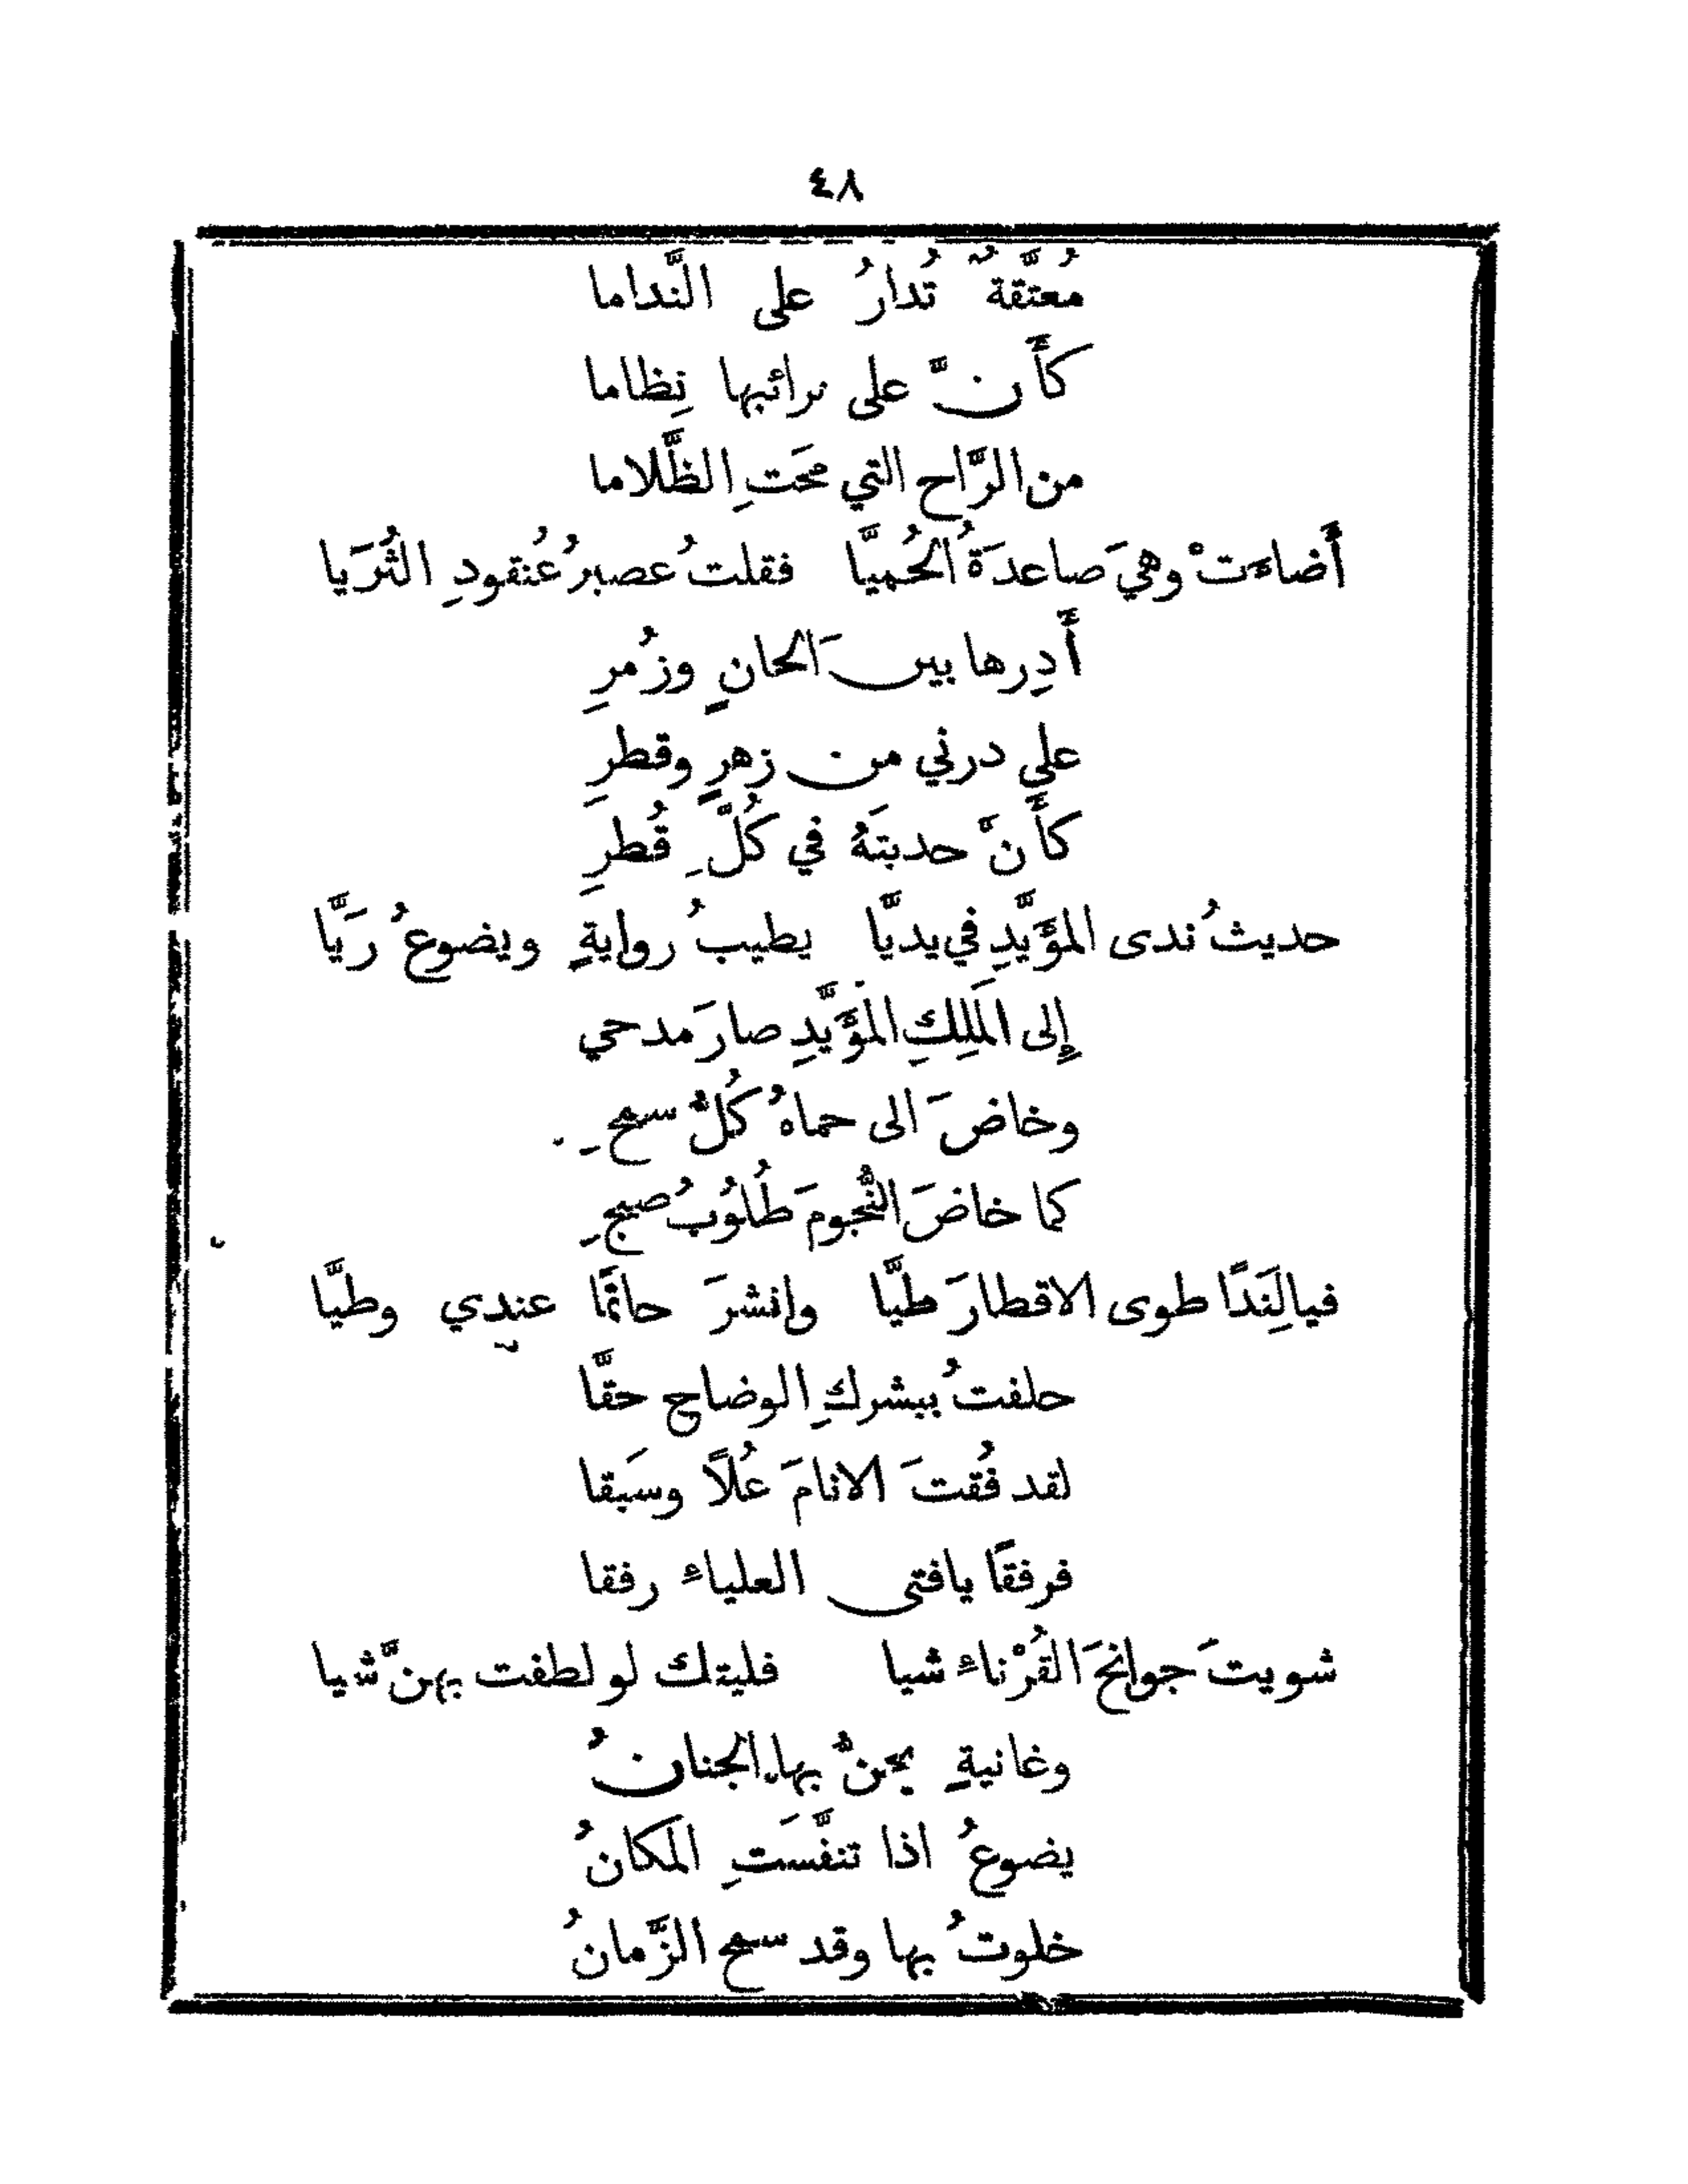 ٤٨
مُعتَّقةٌ تُدارُ على النَّداما
كأَنَّ على ترائبها نِظاما
من الرَّاح التي محَتِ الظَّلاما
أَضاءَتْ وهيَ صاعدَةُ الحُميَّا فقلتُ عصيرُ عُنقودِ الثُرَيا
أَدِرها بينَ الحانٍ وزُمرِ
على درني من زهرٍ وقطرِ
كأَنَّ حديثَهُ في كُلِّ قُطرِ
حديثُ ندى المؤَيَّدِ في يديَّا يطيبُ روايةٍ ويضوعُ رَيَّا
إِلى المَلِكِ المؤَيَّدِ صارَ مدحي
وخاضَ الى حماهُ كُلُّ سمحِ
كما خاضَ النُّجومَ طَلُوبُ صبحِ
فيالِنَدًا طوى الاقطارَ طيَّا وانشرَ حاتمًا عندي وطيَّا
حلفتُ ببشركِ الوضاح حقَّا
لقد فُقتَ الانامَ عُلاً وسَبقا
فرفقًا يافتى العلياءِ رفقا
شويتَ جوانحَ القُرْناءِ شيا فليتك لو لطفت بهنَّ شيا
وغانيةٍ يحنُّ بها الجنانُ
يضوعُ اذا تنفَّسَتِ المكانُ
خلوتُ بها وقد سمح الزَّمانُ